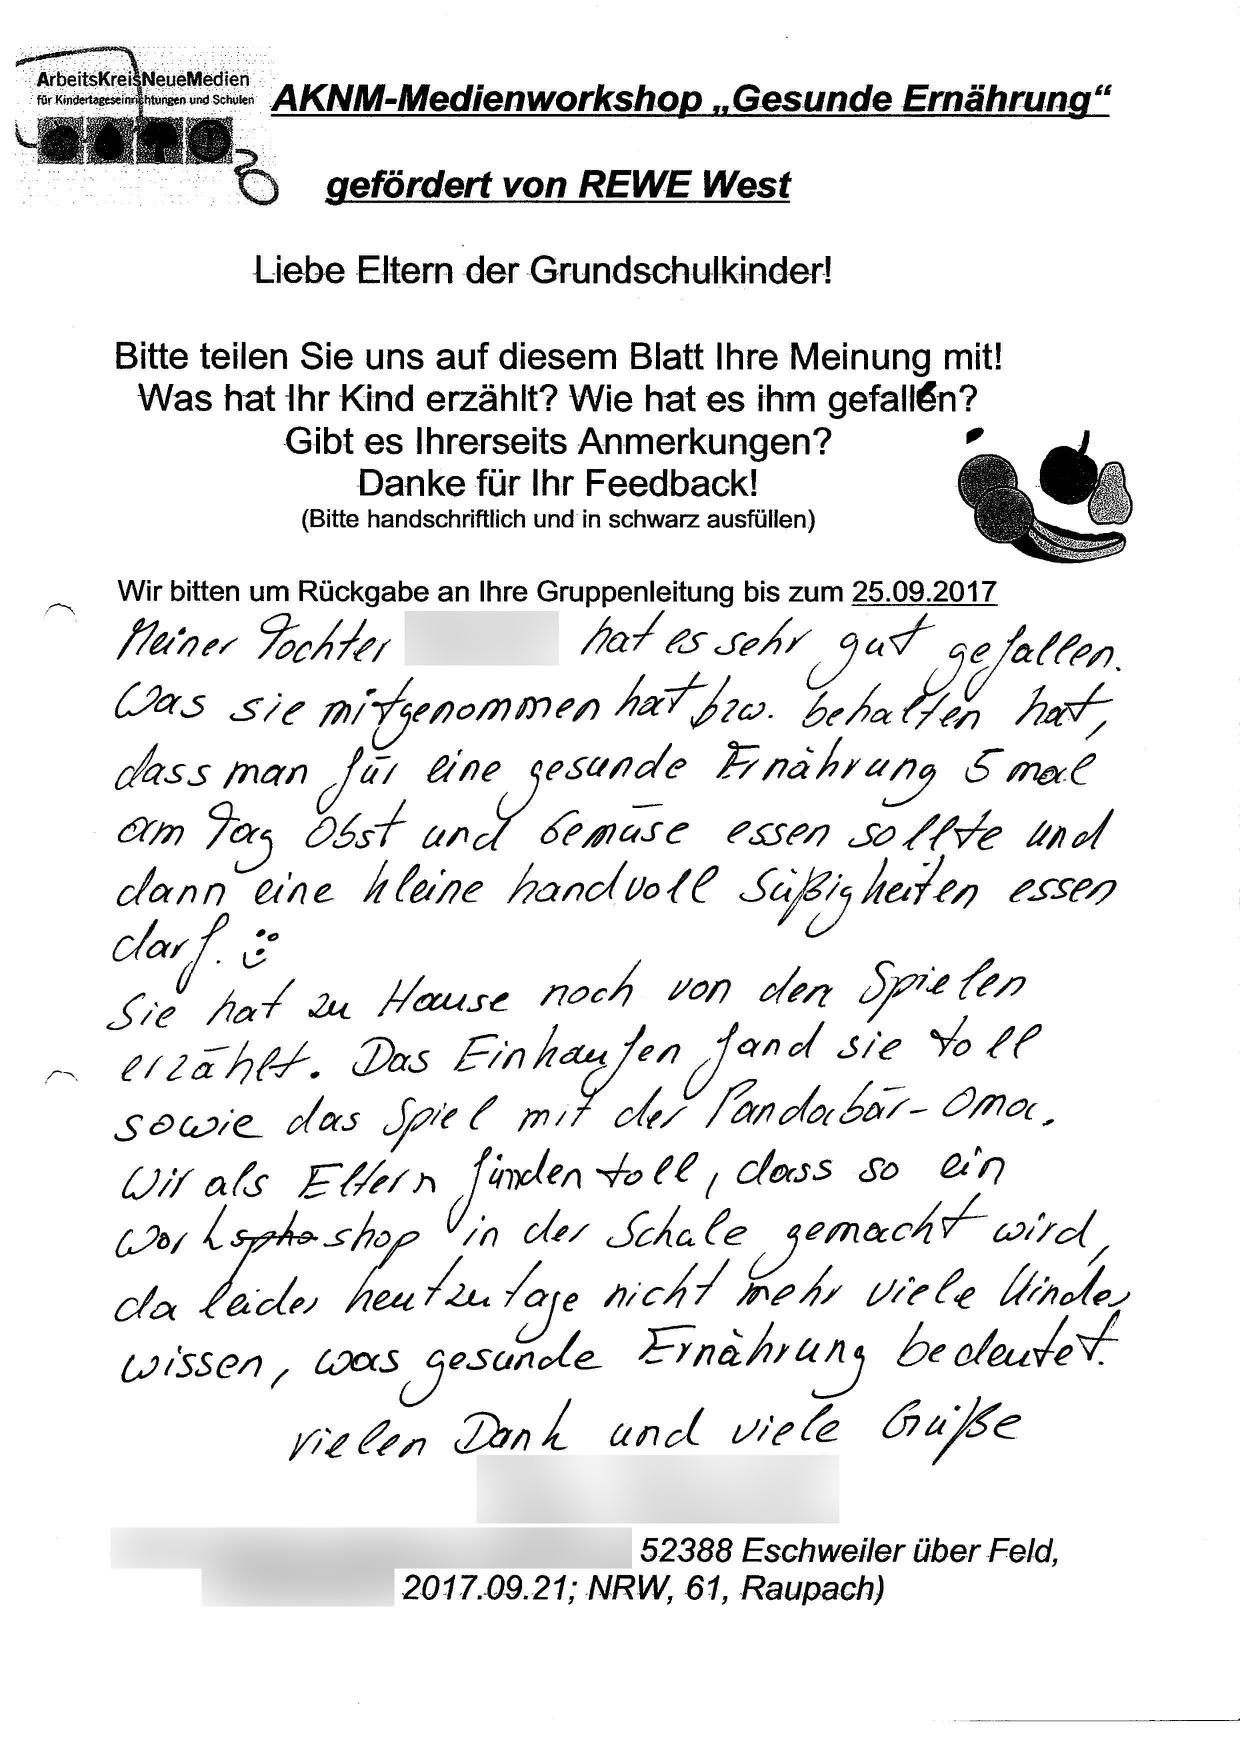 ArbeitsKreisNeueMedien
für Kindertageseinrichtungen und Schulen
AKNM-Medienworkshop „Gesunde Ernährung“
gefördert von REWE West
Liebe Eltern der Grundschulkinder!
Bitte teilen Sie uns auf diesem Blatt Ihre Meinung mit!
Was hat Ihr Kind erzählt? Wie hat es ihm gefallen?
Gibt es Ihrerseits Anmerkungen?
Danke für Ihr Feedback!
(Bitte handschriftlich und in schwarz ausfüllen)
Wir bitten um Rückgabe an Ihre Gruppenleitung bis zum 25.09.2017
Meiner Tochter hat es sehr gut gefallen.
Was sie mitgenommen hat bzw. behalten hat,
dass man für eine gesunde Ernährung 5 mal
am Tag Obst und Gemüse essen sollte und
dann eine kleine handvoll Süßigkeiten essen
darf.
Sie hat zu Hause noch von den Spielen
erzählt. Das Einkaufen fand sie toll
sowie das Spiel mit der Pandabär-Oma.
Wir als Eltern finden toll, dass so ein
Workshop in der Schule gemacht wird,
da leider heutzutage nicht mehr viele Kinder
wissen, was gesunde Ernährung bedeutet.
Vielen Dank und viele Grüße
52388 Eschweiler über Feld,
2017.09.21; NRW, 61, Raupach)